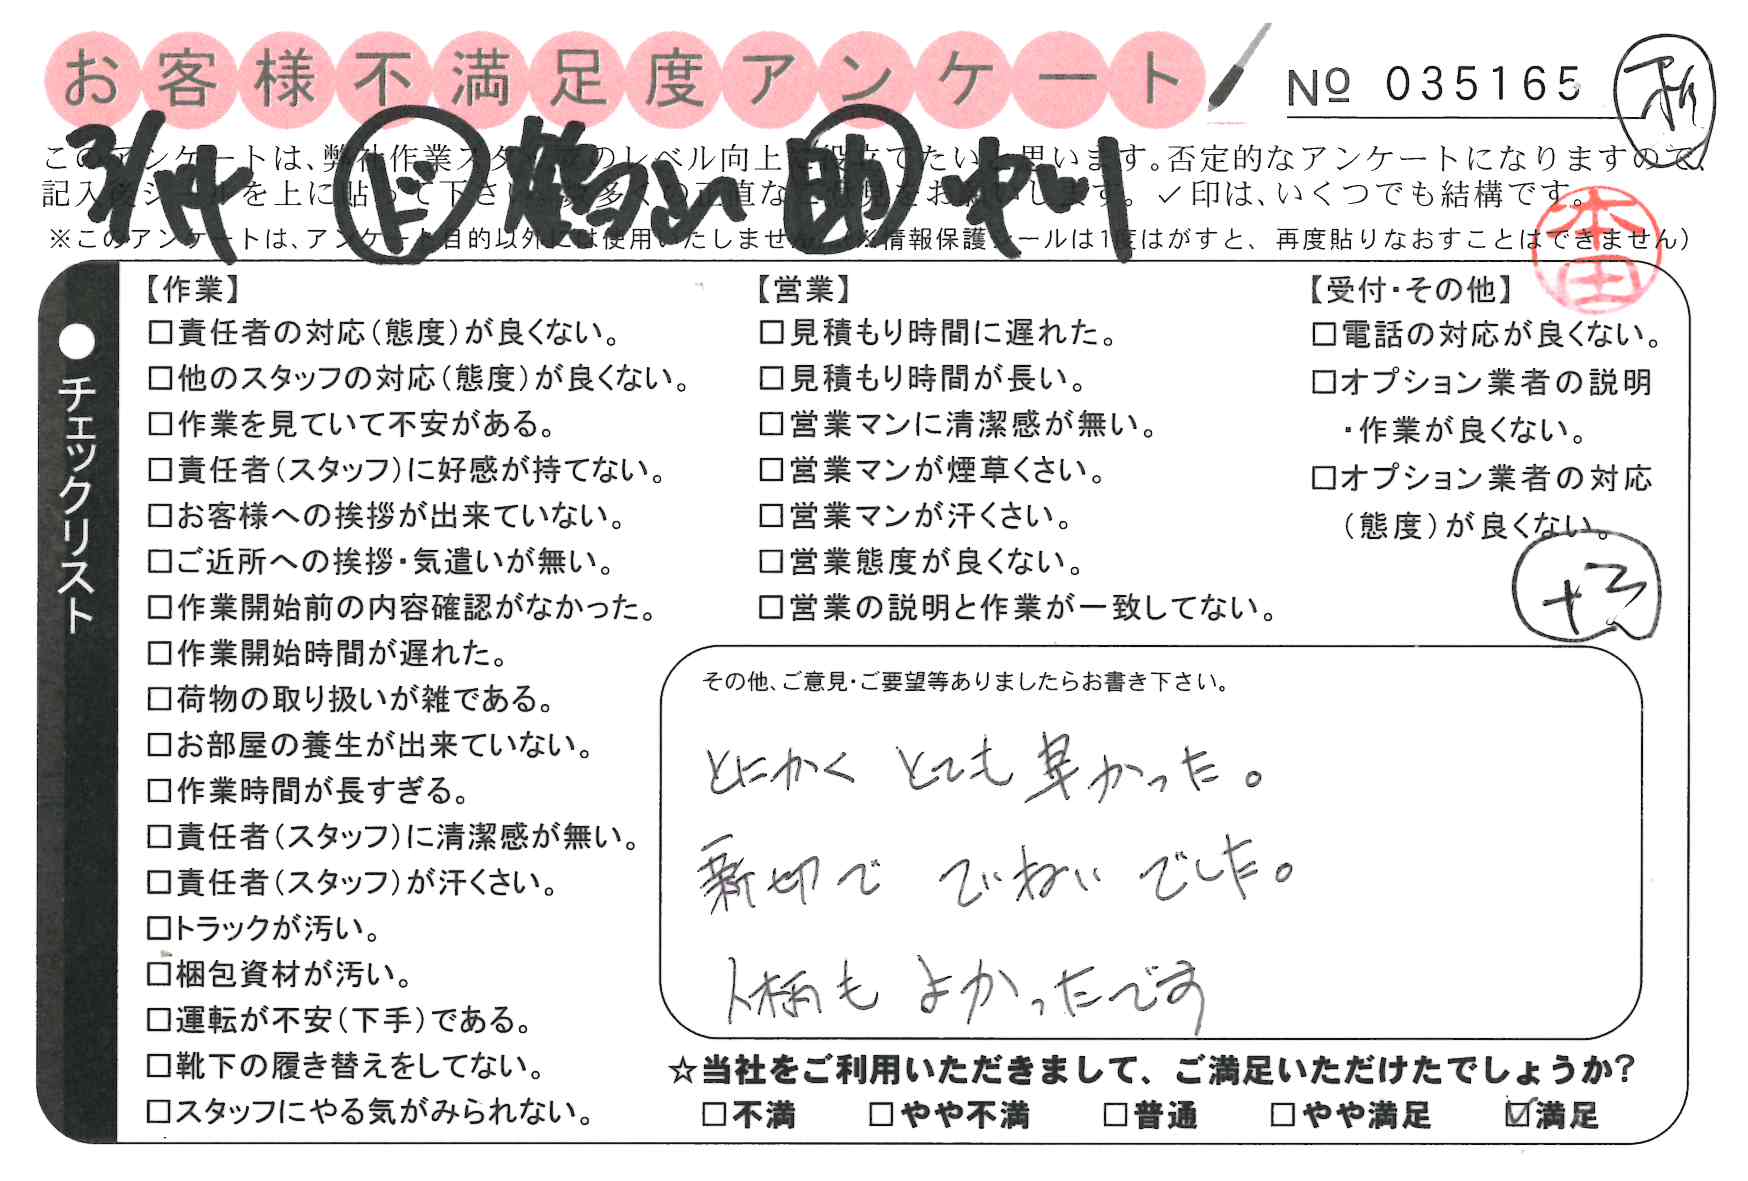 お客様不満足度アンケート
№ 035165
このアンケートは、弊社作業スタッフのレベル向上に役立てたいと思います。否定的なアンケートになりますので、
記入後シールを上に貼って下さい。数多くの正直なご意見をお願いします。✓印は、いくつでも結構です。
※このアンケートは、アンケート目的以外には使用いたしません。(※情報保護シールは1度はがすと、再度貼りなおすことはできません)
ド
助
本田
● チェックリスト
【作業】
□責任者の対応(態度)が良くない。
□他のスタッフの対応(態度)が良くない。
□作業を見ていて不安がある。
□責任者(スタッフ)に好感が持てない。
□お客様への挨拶が出来ていない。
□ご近所への挨拶・気遣いが無い。
□作業開始前の内容確認がなかった。
□作業開始時間が遅れた。
□荷物の取り扱いが雑である。
□お部屋の養生が出来ていない。
□作業時間が長すぎる。
□責任者(スタッフ)に清潔感が無い。
□責任者(スタッフ)が汗くさい。
□トラックが汚い。
□梱包資材が汚い。
□運転が不安(下手)である。
□靴下の履き替えをしてない。
□スタッフにやる気がみられない。
【営業】
□見積もり時間に遅れた。
□見積もり時間が長い。
□営業マンに清潔感が無い。
□営業マンが煙草くさい。
□営業マンが汗くさい。
□営業態度が良くない。
□営業の説明と作業が一致してない。
【受付・その他】
□電話の対応が良くない。
□オプション業者の説明
・作業が良くない。
□オプション業者の対応
(態度)が良くない。
その他、ご意見・ご要望等ありましたらお書き下さい。
とにかく とても早かった。
親切で ていねい でした。
人柄も よかったです
☆当社をご利用いただきまして、ご満足いただけたでしょうか?
□不満 □やや不満 □普通 □やや満足 ☑満足